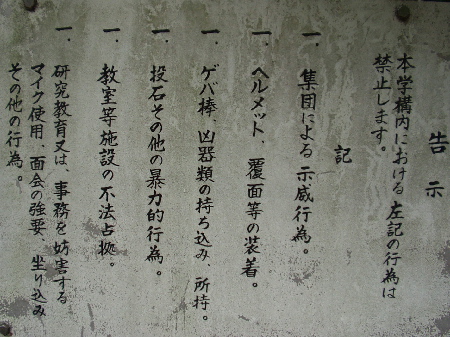 告示
本学構内における左記の行為は
禁止します。
記
一、集団による示威行為。
一、ヘルメット、覆面等の装着。
一、ゲバ棒、凶器類の持ち込み、所持。
一、投石その他の暴力的行為。
一、教室等施設の不法占拠。
一、研究教育又は、事務を妨害する
マイク使用、面会の強要 坐り込み
その他の行為。